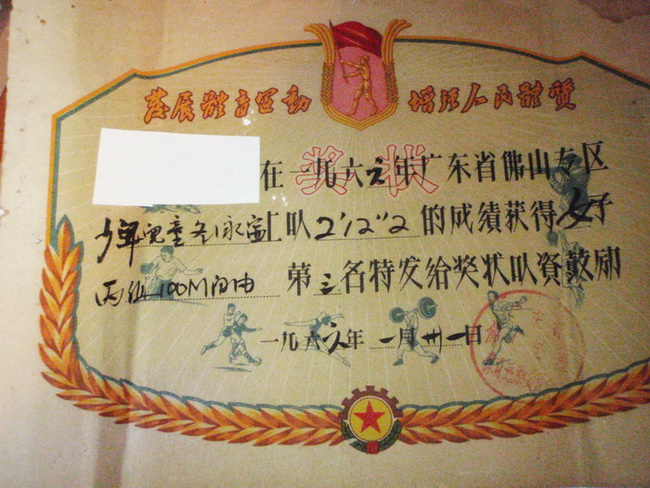 發展體育運動 增强人民體質
奖状
在一九六六年广东省佛山专区
少年児童冬泳賽上以2'12"2的成績获得女子
丙组100M自由 第三名特发给奖状以資鼓励
一九六六年一月卅一日